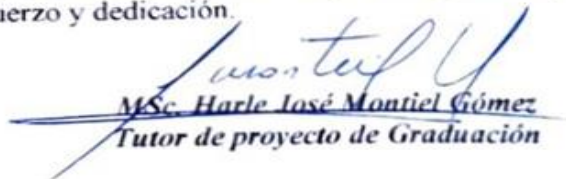 uerzo y dedicación.
MSc. Harle José Montiel Gómez
Tutor de proyecto de Graduación